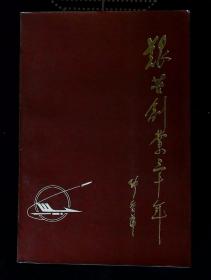 艰苦创业三十年